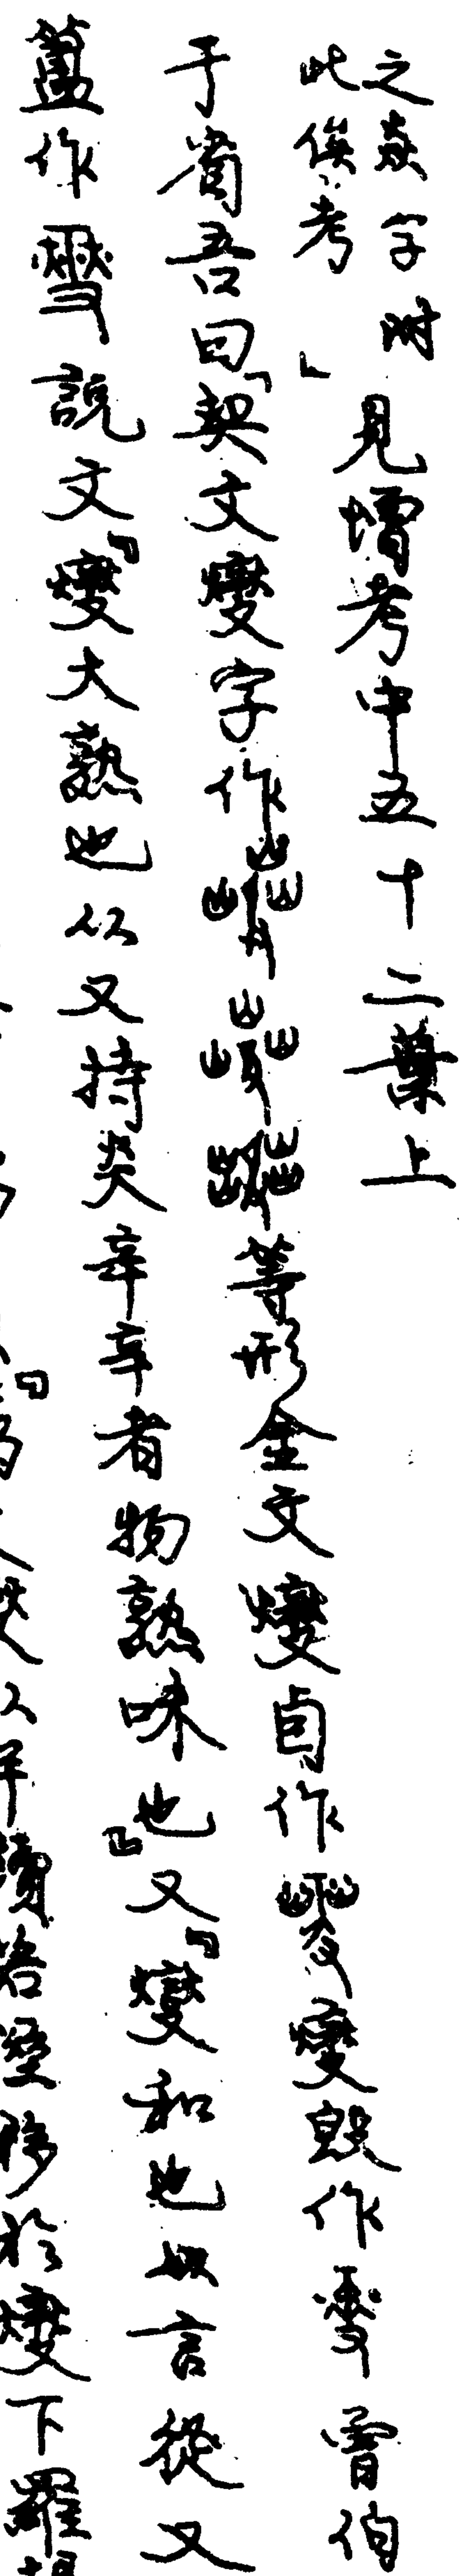 之焱字附
此俟考」
見增考中五十二葉上
于省吾曰「契文燮字作等形金文燮卣作燮𣪘作曾伯
簠作說文『燮大熟也从又持炎辛辛者物熟味也』又『燮和也从言從又
讀若溼移於燮下羅